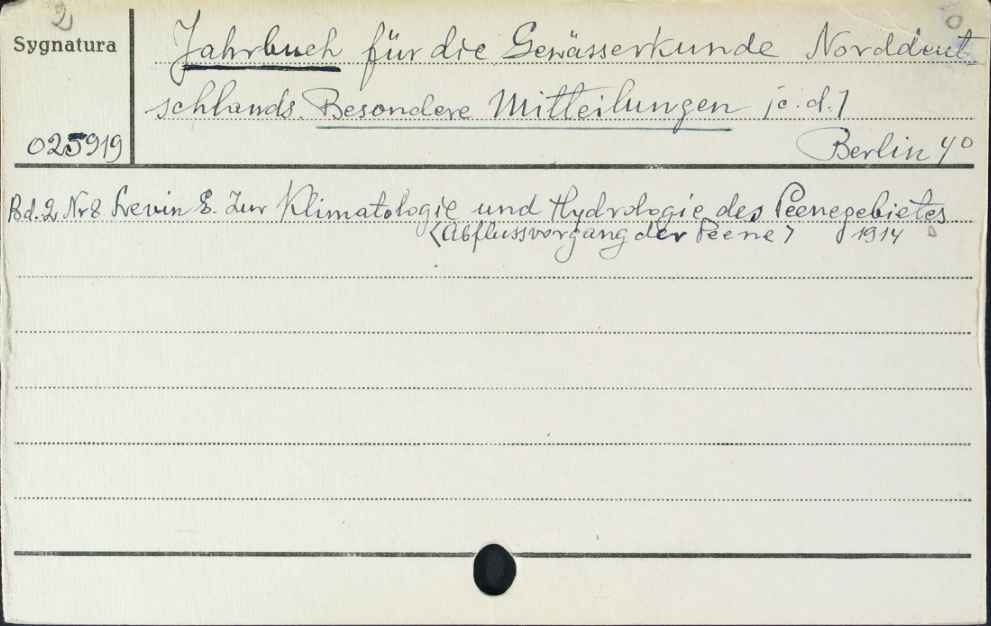 2
Sygnatura
Jahrbuch für die Gewässerkunde Norddeut
schlands. Besondere Mitteilungen /c.d./
025919
Berlin 4°
Bd.2 Nr8 Frevin E. Zur Klimatologie und Hydrologie des Peenegebietes
<Abflussvorgang der Peene> 1914